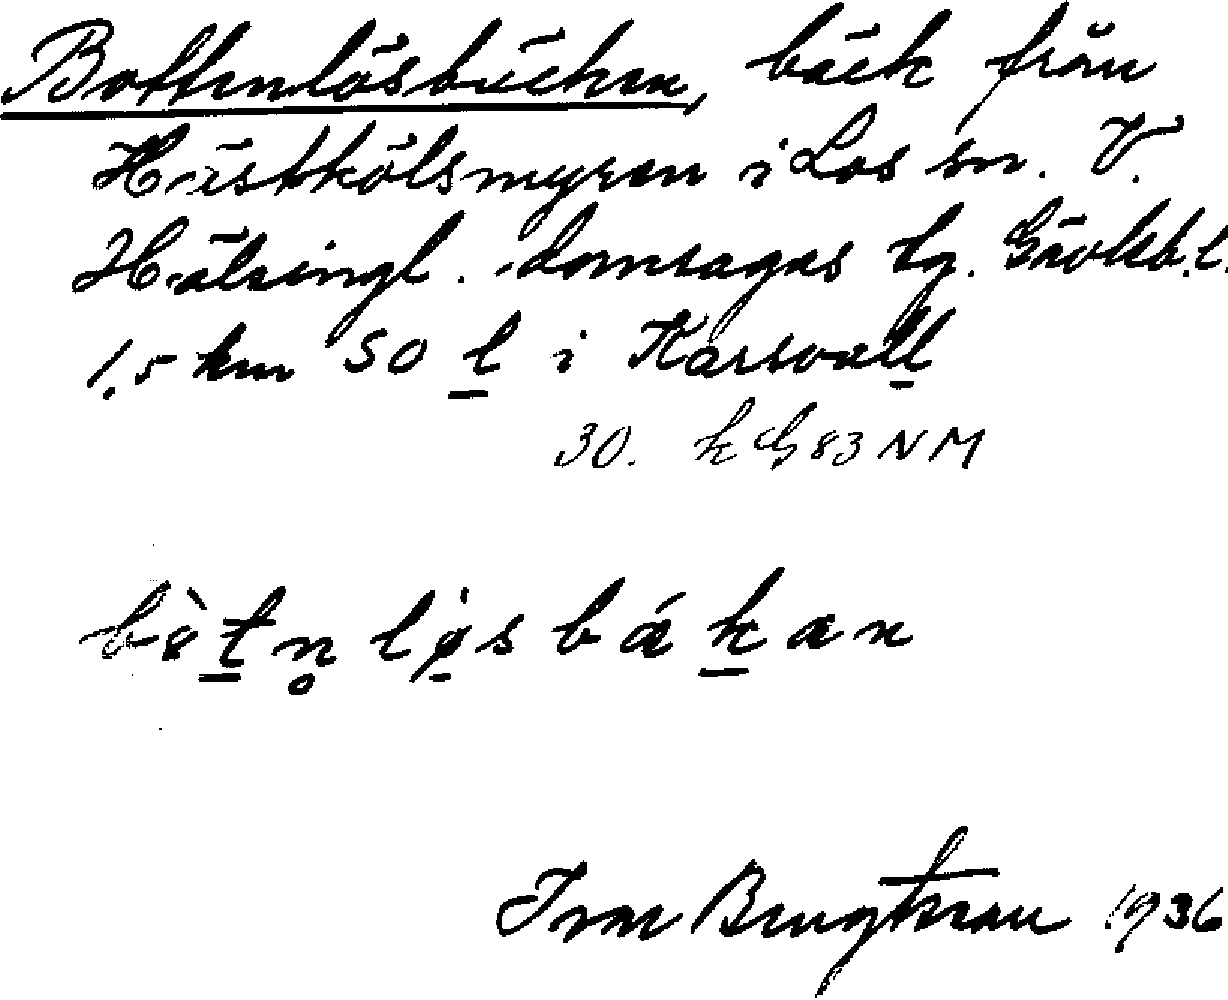 Bottenlösbäcken, bäck från
Hästkölsmyren i Los sn. V.
Hälsingl. domsagas tg. Gävleb.l.
1,5 km SO l i Karsvall
30. k G 83 NM
løsbákan
Ivar 1936